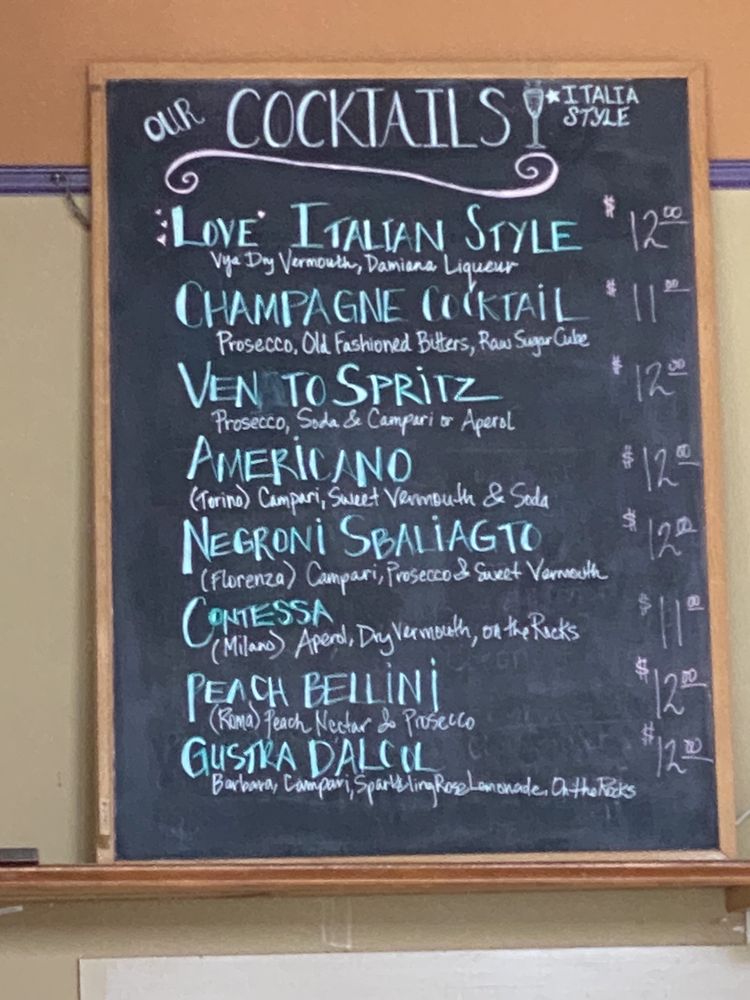 OUR COCKTAILS *ITALIA STYLE
LOVE ITALIAN STYLE $12.00
Vya Dry Vermouth, Damiana Liqueur
CHAMPAGNE COCKTAIL $11.00
Prosecco, Old Fashioned Bitters, Raw Sugar Cube
VEN TO SPRITZ $12.00
Prosecco, Soda & Campari or Aperol
AMERICANO $12.00
(Torino) Campari, Sweet Vermouth & Soda
NEGRONI SBALIAGTO $12.00
(Florenza) Campari, Prosecco & Sweet Vermouth
CONTESSA $11.00
(Milano) Aperol, Dry Vermouth, on the Rocks
PEACH BELLINI $12.00
(Roma) Peach Nectar & Prosecco
GUSTRA D'ALCOL $12.00
Barbara, Campari, Sparkling Rose Lemonade, On the Rocks